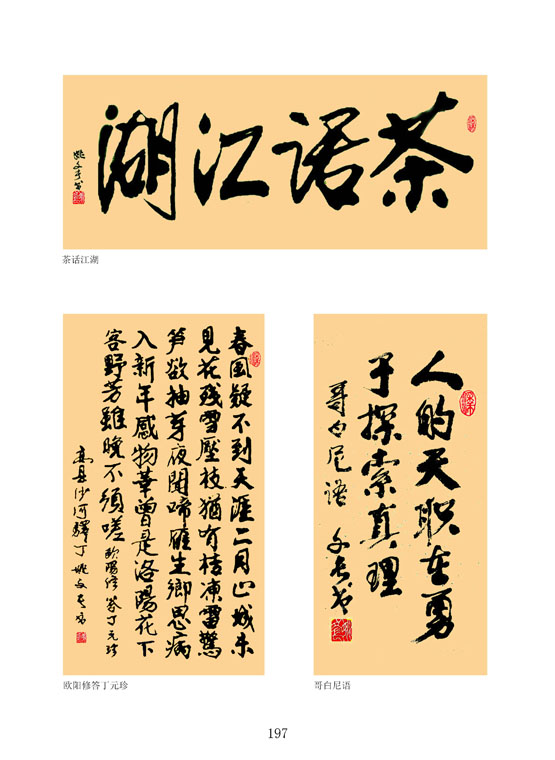 茶话江湖
姚文长书
茶话江湖
春風疑不到天涯二月山城未
見花殘雪壓枝猶有桔凍雷驚
笋欲抽芽夜聞啼雁生鄉思病
入新年感物華曾是洛陽花下
客野芳雖晚不須嗟 欧陽修答丁元珍
高县沙河驛丁姚文长书
欧阳修答丁元珍
人的天职在勇
于探索真理
哥白尼语 文长书
哥白尼语
197